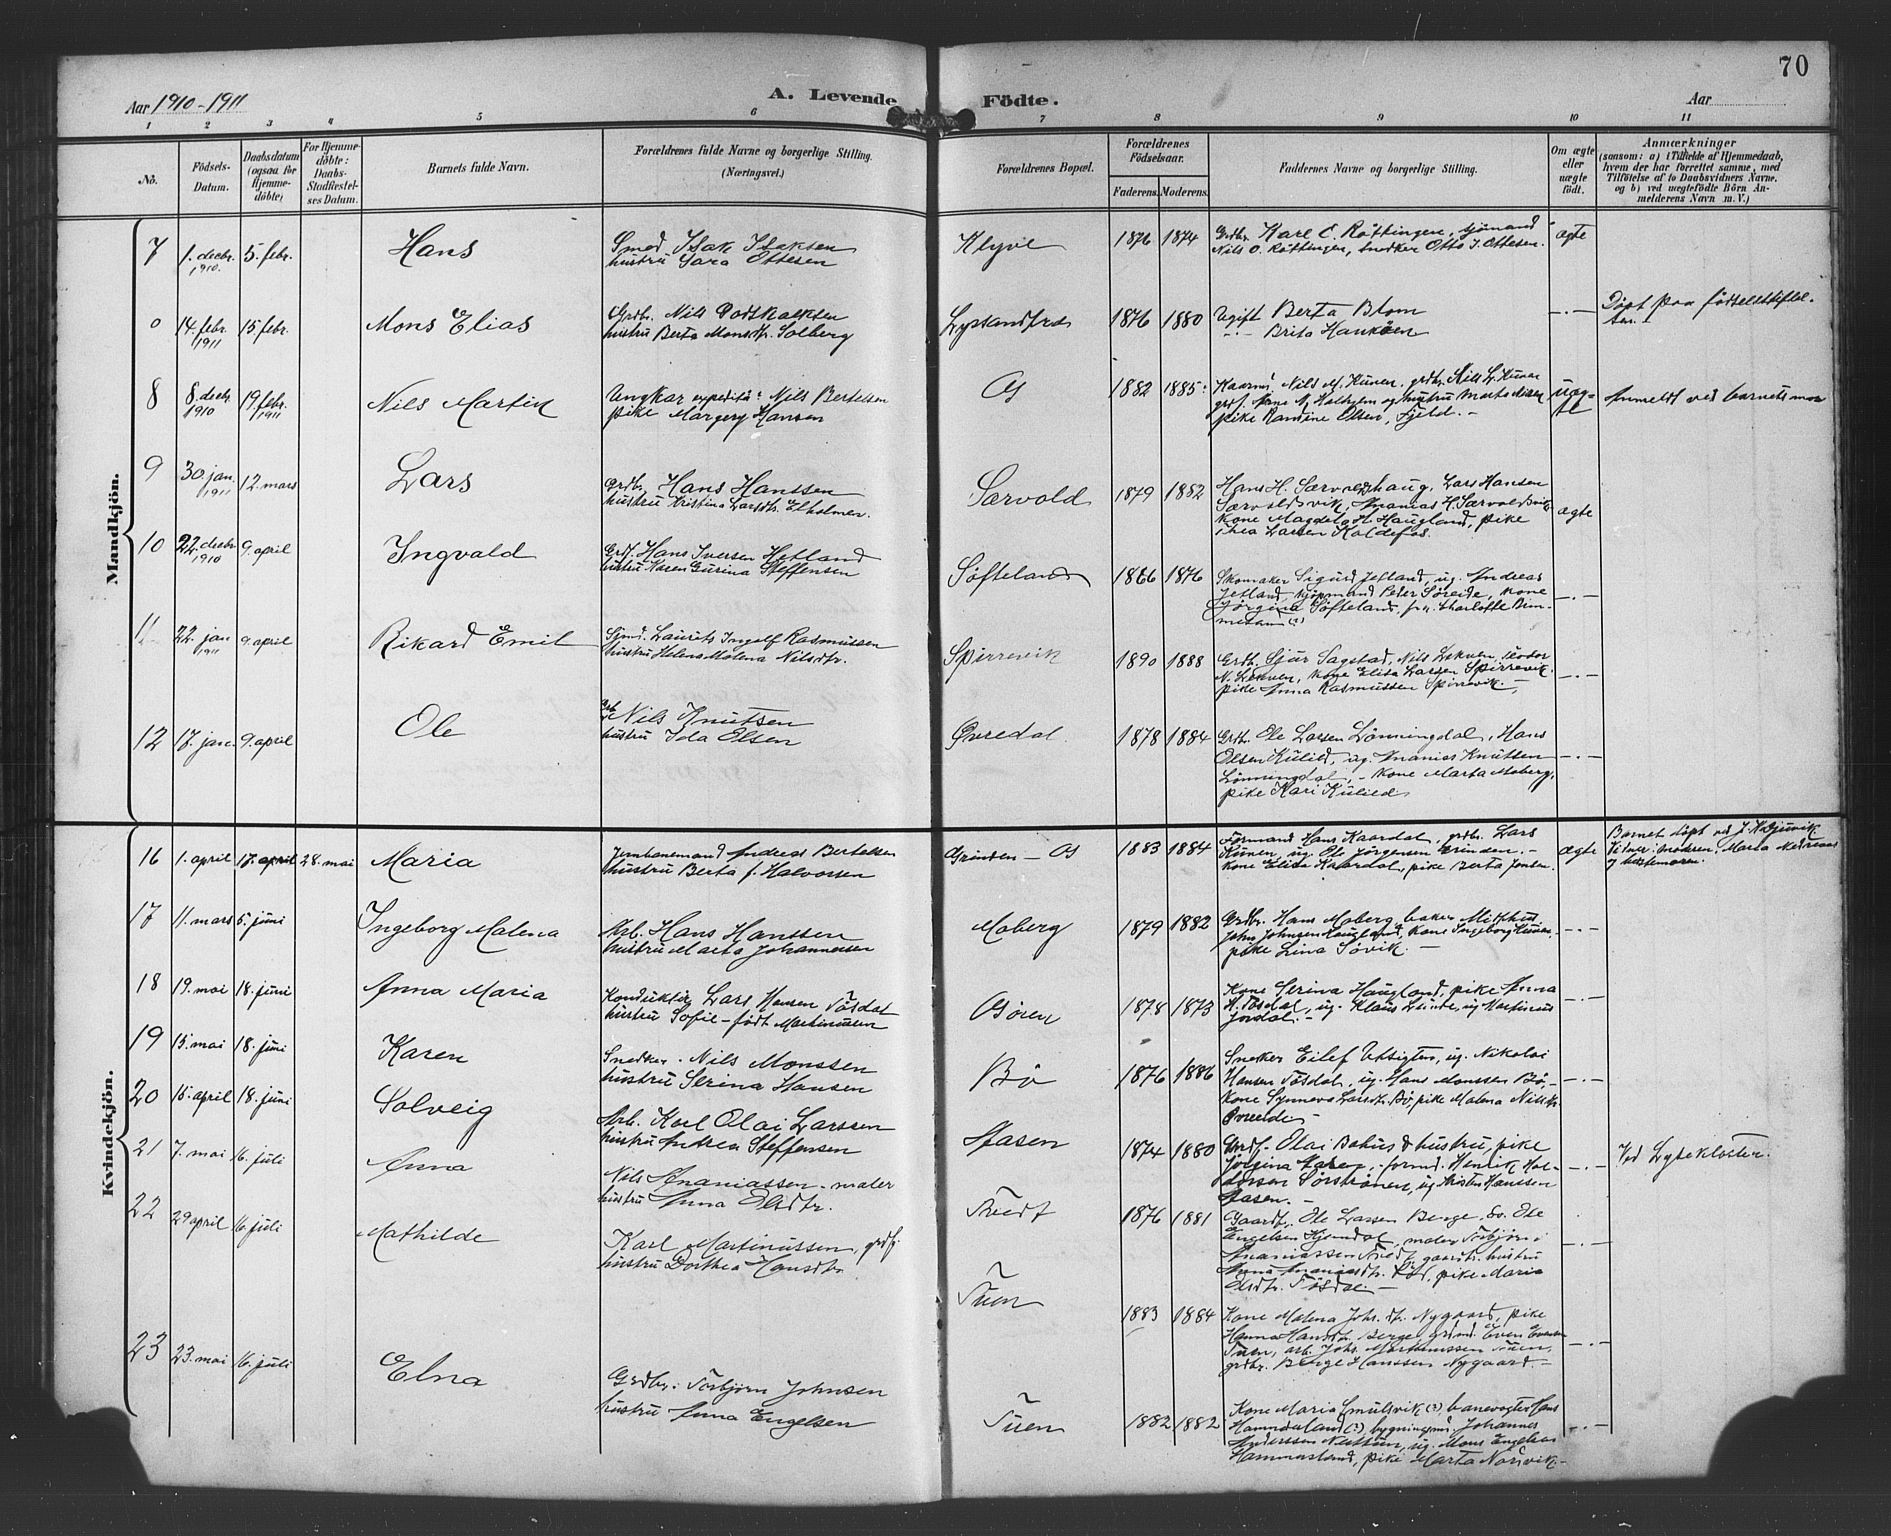 70
Aar 1910-1911
A. Levende Födte.
Aar
1 2 3 4 5 6 7 8 9 10 11
No.
Födsels-Datum.
Daabsdatum (ogsaa for Hjemme-döbte)
For Hjemme-döbte: Daabs-Stadfæstel-ses Datum.
Barnets fulde Navn.
Forældrenes fulde Navne og borgerlige Stilling. (Næringsvei.)
Forældrenes Bopæl.
Forældrenes Födselsaar.
Faderens. Moderens.
Faddernes Navne og borgerlige Stilling.
Om ægte eller uægte födt.
Anmærkninger
(saasom: a) i Tilfælde af Hjemmedaab,
hvem der har forrettet samme, med
Tilföielse af to Daabsvidners Navne.
og b) ved uægtefödte Börn An-
melderens Navn m. V.)
Mandkjön.
7 1. decbr. 1910 5. febr. Hans
Smed Isak Isaksen
hustru Sara Ottesen
Klyve 1876 1874
Grdbr. Karl O. Røttingen, sjömand
Nils O. Røttingen, snedker Otto I. Ottesen.
ægte
0 14. febr. 1911 15. febr. Mons Elias
Grdbr. Nils Godskalksen
hustru Berta Monsdtr. Solberg
Lyssandfrd 1876 1880
Ugift Berta Blom
-"- Brita Hauköen
-"-
Döpt paa födselsstiftel-
sen.
8 8. decbr. 1910 19. febr. 1911 Nils Martin
Ungkar expeditr. Nils Bertelsen
pike Margery Hansen
Os 1882 1885
Nils M. Kuven, grdbr. Nils L. Kuven
pike Randine Olsen, Fjeld.
uæg-
te
Anmeldt ved barnets mor
9 30. jan. 1911 12. mars Lars
Grdbr. Hans Hanssen
hustru Kristina Larsdtr. Elholmen.
Særvold 1879 1882
Hans H. Særvoldhaug, Lars Hansen
Særvoldsvik, Ananias H. Særvoldsvik
kone Magdela H. Haugland, pike
Thea Larsen Koldefos.
ægte
10 22. decbr 1910 9. april Ingvald
Grdf. Hans Iversen Hetland
hustru Karen Gurina Steffensen
Söfteland 1866 1876
Skomaker Sigurd Jetland, ug. Andreas
Jetland, kjöpmand Peter Söreide, kone
Jörgina Söfteland, frk. Charlotte Bim-
mesand (?)
-"-
11 22. jan 1911 9. april Rikard Emil
Sjmd. Laurits Ingolf Rasmussen
hustru Helena Malena Nilsdtr.
Spirrevik 1890 1888
Grdb. Sjur Sagstad, Nils Lekven, Teodor
N. Lekven, kone Elisa Larsen Spirrevik.
pike Anna Rasmussen Spirrevik.
-"-
12 17. jan. 9. april Ole
Grdb. Nils Knutsen
hustru Ida Olsen
Øvredal 1878 1884
Grdbr. Ole Larsen Lönningdal, Hans
Olsen Kulied, ug. Ananias Knutsen
Lönningdal, - kone Marta Moberg,
pike Kari Kulied
-"-
Kvindekjön.
16 1. april 17. april 28. mai Maria
Jernbanemand Andreas Bertelsen
hustru Berta f. Halvorsen
Grinden - Os 1883 1884
Formand Hans Kaardal, grdbr. Lars
Kuven, ug. Ole Jörgensen Grinden. -
kone Elida Kaardal, pike Berta Jensen.
ægte
Barnet döpt ved J. K. Djuvik.
Vidner: modren, Maria
og bestemoren.
17 11. mars 5. juni Ingeborg Malena
Arb. Hans Hanssen
hustru Marta Johannesen
Moberg 1879 1882
Grdbr. Hans Moberg, baker Midthus
John Johnsen Haugland, kone Ingeborg Kuven,
pike Lina Sövik. -
-"-
18 19. mai 18. juni Anna Maria
Konduktör Lars Hansen Tösdal
hustru Sofie - född Martinussen
Osören 1878 1873
Kone Serina Haugland, pike Anna
H. Tösdal, ug. Klaus Lunde, ug Martinius
Jordal. -
-"-
19 15. mai 18. juni Karen
Snedker Nils Monssen
hustru Serina Hansen
Bö 1876 1886
Sneker Eilef Utsigten, ug. Nikolai
Hansen Tösdal, ug. Hans Monssen Bö,
kone Synneva Larsdtr. Bö, pike Malena Nilsdtr.
Øvreeide
-"-
20 15. april 18. juni Solveig
Arb. Karl Olai Larssen
hustru Andrea Steffensen
Aasen 1874 1880
Grdf. Olai Bahus & hustru, pike
Jörgina Aasen, - formd. Henrik Hal-
dorsen Sörströnen, ug. Kristen Hanssen
Aasen. -
-"-
Ved Lysekloster.
21 7. mai 16. juli Anna
Nils Ananiassen - maler
hustru Anna Olsdtr.
Tvedt 1876 1881
Gaardb. Ole Larsen Berge, Os. Ole
Engelsen Hjemdal, maler Torbjörn
Ananiassen Tvedt, gaardbr. hustru
Anna Ananiasdtr. Röd, pike Maria
Olsdtr. Tösdal -
-"-
22 29 april 16. juli Mathilde
Karl Martinussen, grdf.
hustru Dorthea Hansdtr.
Tuen 1883 1884
Kone Malena Johs.dtr. Nygaard, pike
Hanna Hansdtr. Berge, grdmd. Even Evensen
Tuen, arb. Johs. Martinussen Tuen,
grdbr. Berge Hanssen Nygaard. -
-"-
23 23. mai 16. juli Elna
Grdbr. Torbjörn Johnsen
hustru Anna Engelsen
Tuen 1882 1882
Kone Maria Smulsvik (?), banevogter Hans
Hamndaland (?), bygningsm. Johannes
Anderssen Nesttun, ug. Mons Engelsen
Hammarsland, pike Marta Norsvik. -
-"-